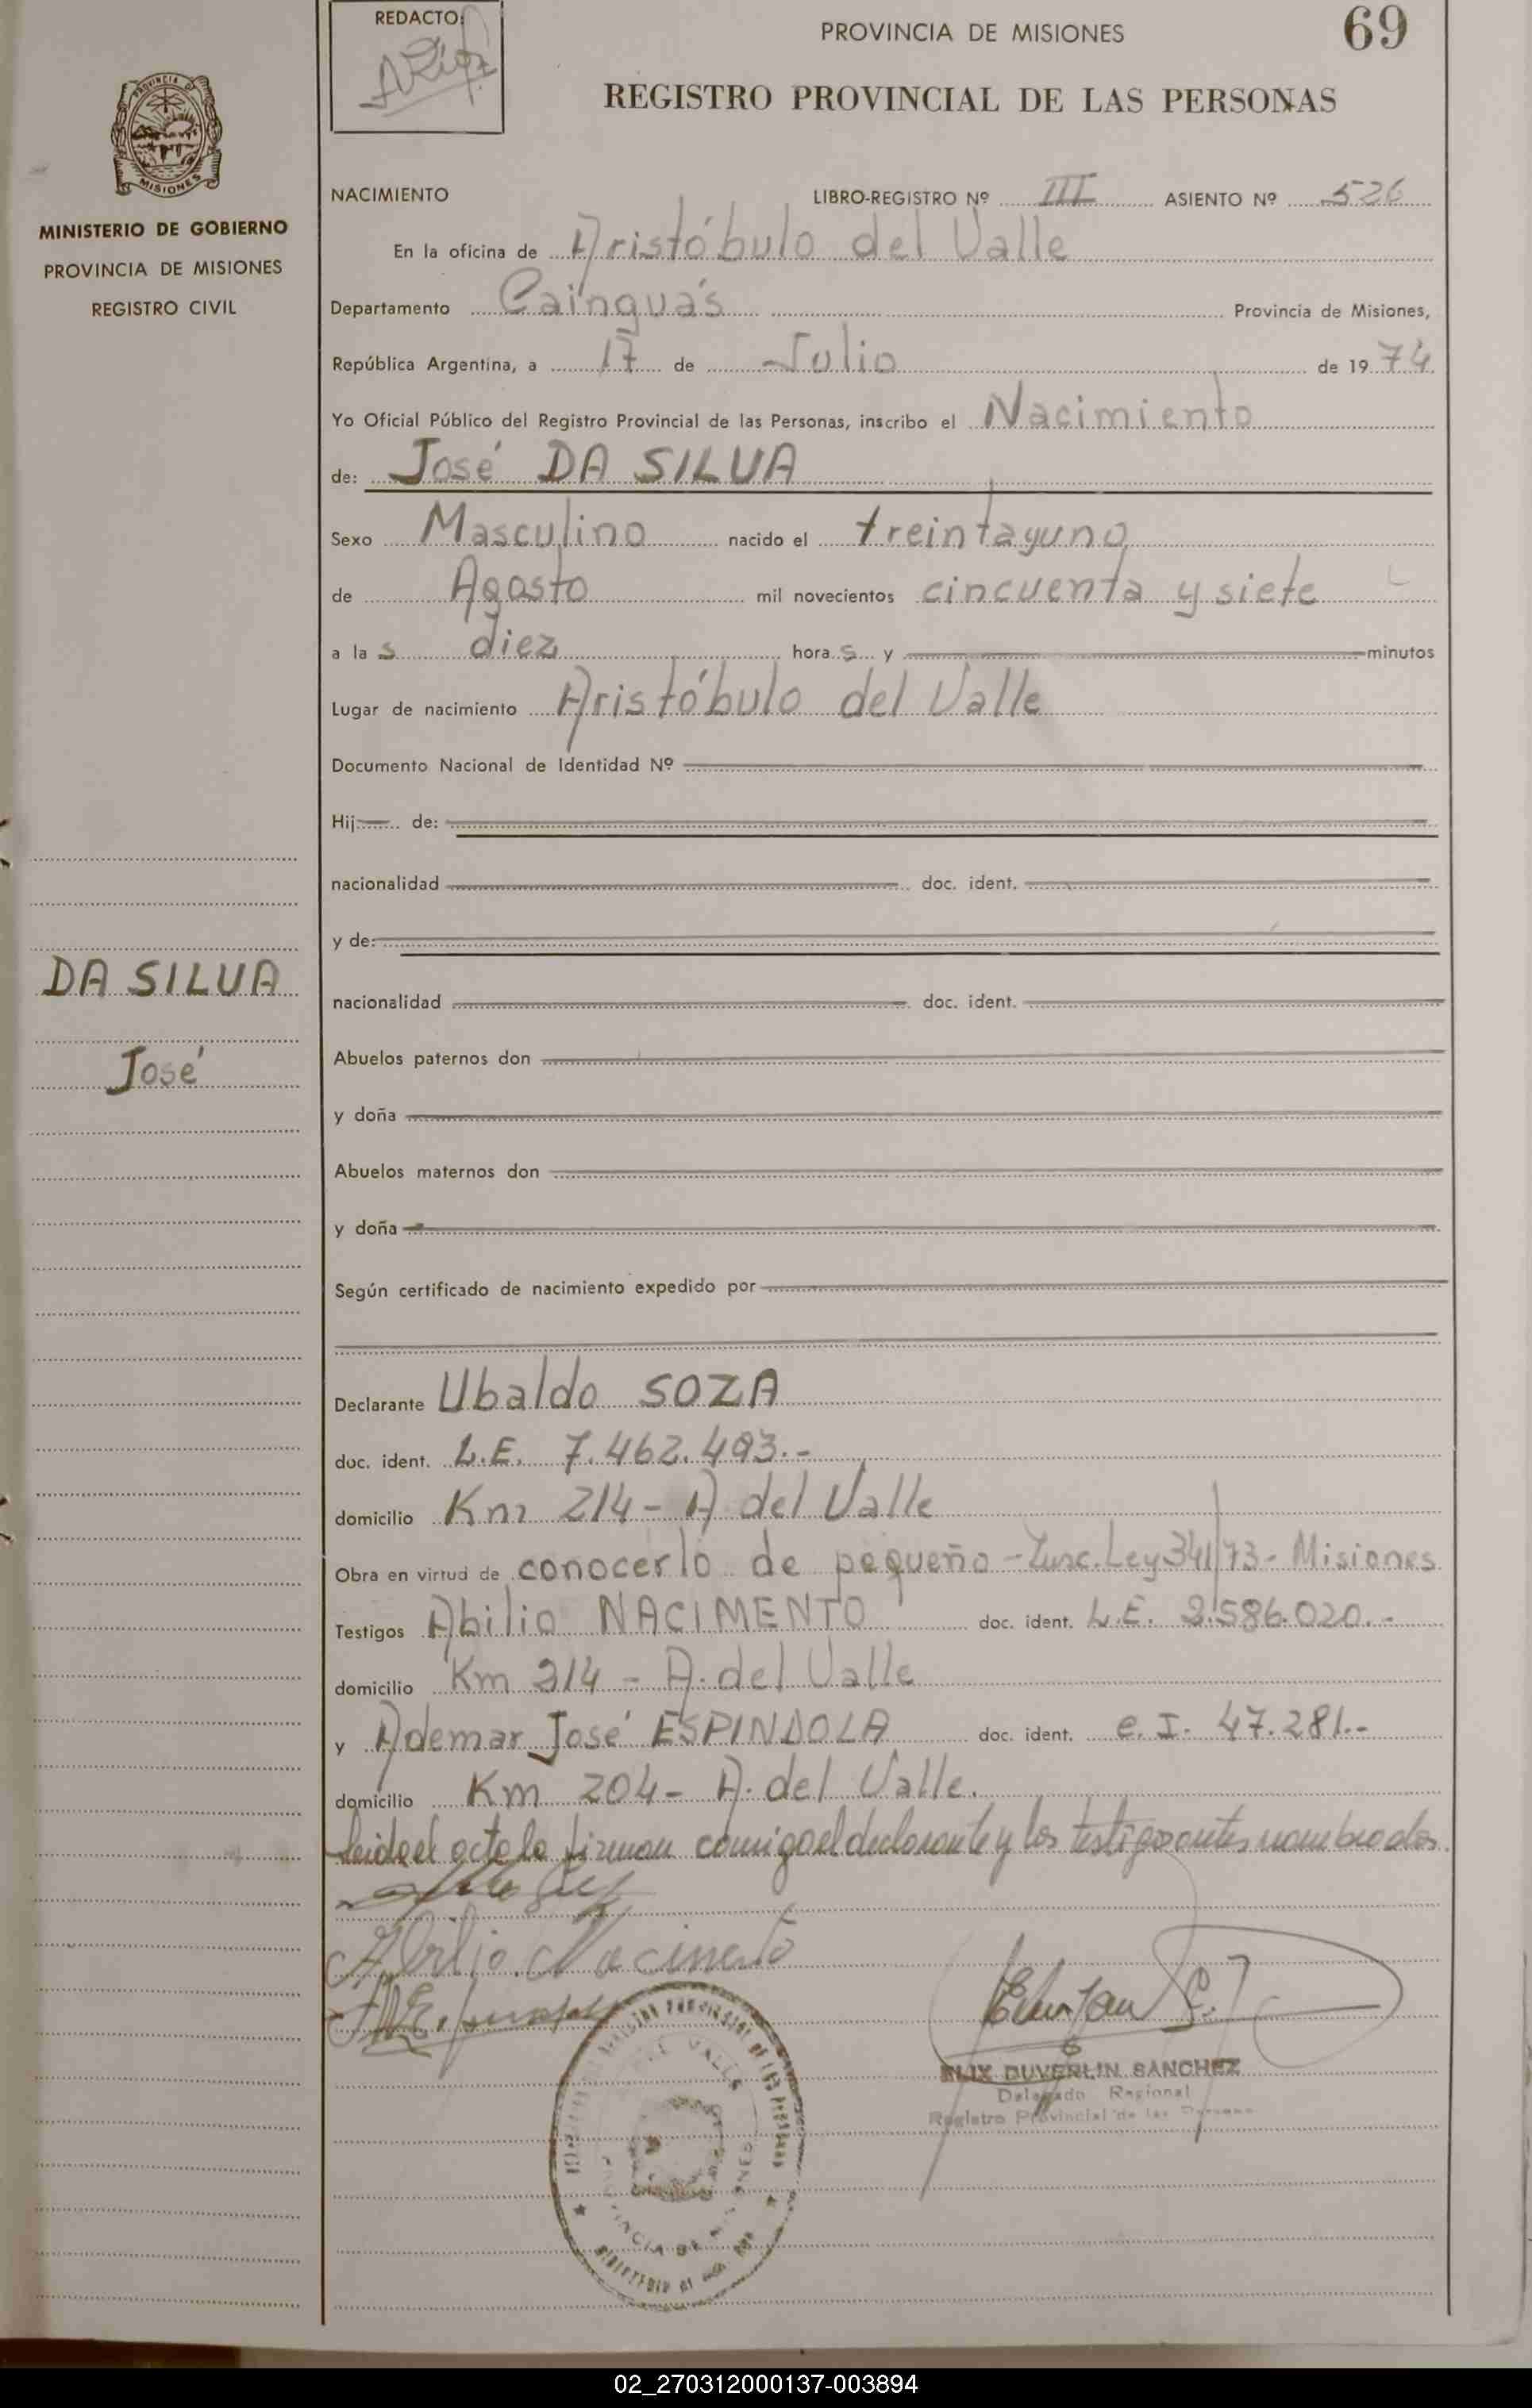 REDACTO:
PROVINCIA DE MISIONES
69
REGISTRO PROVINCIAL DE LAS PERSONAS
MISIONES
MINISTERIO DE GOBIERNO
PROVINCIA DE MISIONES
REGISTRO CIVIL
NACIMIENTO LIBRO-REGISTRO Nº III ASIENTO Nº 526
En la oficina de Aristóbulo del Valle
Departamento Cainguás Provincia de Misiones,
República Argentina, a 17 de Julio de 1974
Yo Oficial Público del Registro Provincial de las Personas, inscribo el Nacimiento
de: José DA SILVA
Sexo Masculino nacido el treintayuno
de Agosto mil novecientos cincuenta y siete
a las diez horas y minutos
Lugar de nacimiento Aristóbulo del Valle
Documento Nacional de Identidad Nº
Hij de:
nacionalidad doc. ident.
y de:
DA SILVA
nacionalidad doc. ident.
José
Abuelos paternos don
y doña
Abuelos maternos don
y doña
Según certificado de nacimiento expedido por
Declarante Ubaldo SOZA
doc. ident. L.E. 7.462.493.-
domicilio Km 214 - A. del Valle
Obra en virtud de conocerlo de pequeño - Insc. Ley 341/73 - Misiones
Testigos Abilio NACIMENTO doc. ident. L.E. 2.586.020.-
domicilio Km 214 - A. del Valle
y Ademar José ESPINDOLA doc. ident. C.I. 47.281.-
domicilio Km 204 - A. del Valle.
Leido el acta la firman conmigo el declarante y los testigos antes nombrados.
Abilio Nacimento
ELIX DUVERLIN SANCHEZ
Delegado Regional
Registro Provincial de las Personas
02_270312000137-003894